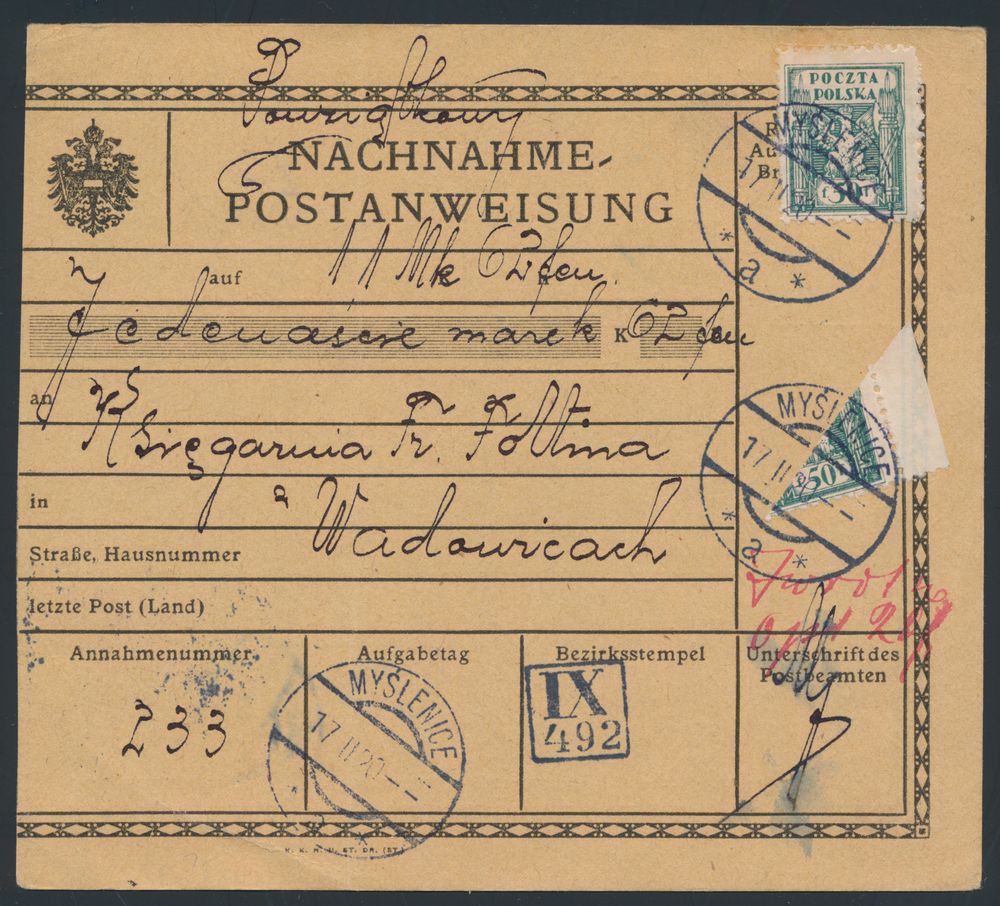 POCZTA
POLSKA
50
NACHNAHME-
POSTANWEISUNG
MYŚLENICE
17 II 20
a
auf 11 Mk 62 fen.
Jedenaście marek K 62 fen
an Księgarnia Fr. Foltina
MYŚLENICE
17 II 20
a
50
in
a Wadowicach
Straße, Hausnummer
letzte Post (Land)
Annahmenummer Aufgabetag Bezirksstempel Unterschrift des
Postbeamten
233
MYŚLENICE
17 II 20
IX
492
K. K. H. U. ST. DR. (ST.)